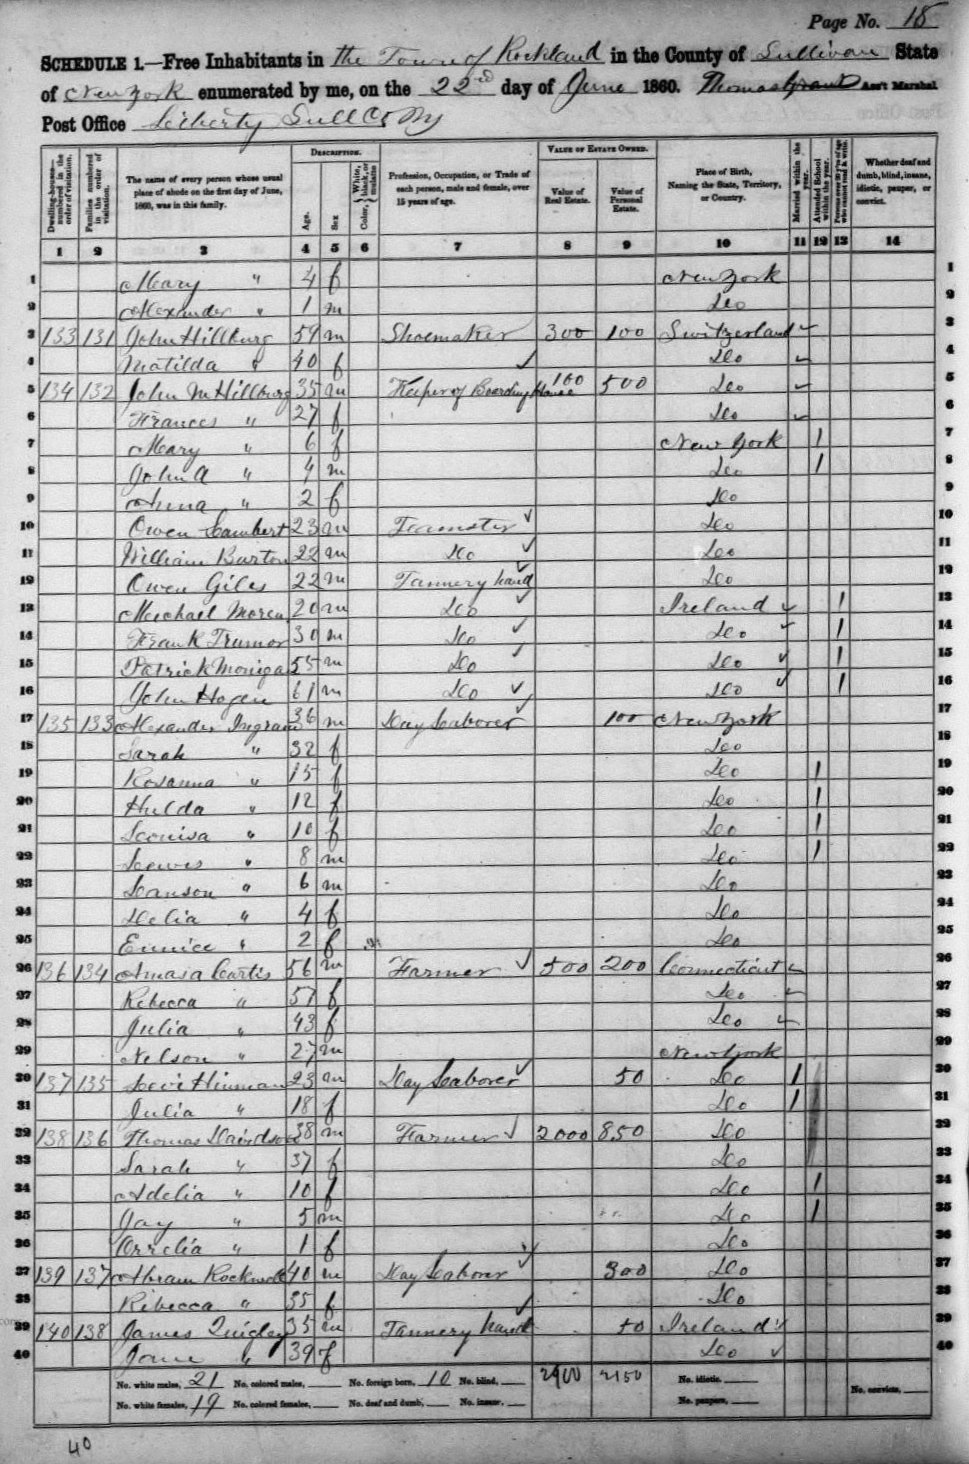 Page No. 18
SCHEDULE 1.—Free Inhabitants in the Town of Rockland in the County of Sullivan State
of New York enumerated by me, on the 22nd day of June 1860. Thomas Grant Ass't Marshal
Post Office Liberty Sull Co Ny
Dwelling-houses—numbered in the order of visitation. Families numbered in the order of visitation. The name of every person whose usual place of abode on the first day of June, 1860, was in this family. DESCRIPTION. Age. Sex Color, White, black, or mulatto Profession, Occupation, or Trade of each person, male and female, over 15 years of age. VALUE OF ESTATE OWNED. Value of Real Estate. Value of Personal Estate. Place of Birth, Naming the State, Territory, or Country. Married within the year. Attended School within the year. Persons over 20 y'rs of age who cannot read & write. Whether deaf and dumb, blind, insane, idiotic, pauper, or convict.
1 2 3 4 5 6 7 8 9 10 11 12 13 14
1 Mary " 4 f New York 1
2 Alexander " 1 m Do 2
3 133 131 John Hillburg 59 m Shoemaker 300 100 Switzerland 3
4 Matilda " 40 f Do 4
5 134 132 John M Hillburg 35 m Keeper of Boarding House 100 500 Do 5
6 Frances " 27 f Do 6
7 Mary " 6 f New York 1 7
8 John A " 4 m Do 1 8
9 Anna " 2 f Do 9
10 Owen Lambert 23 m Teamster Do 10
11 William Burton 22 m Do Do 11
12 Owen Giles 22 m Tannery hand Do 12
13 Michael 20 m Do Ireland 1 13
14 Frank 30 m Do Do 1 14
15 Patrick 55 m Do Do 1 15
16 John Hogen 61 m Do Do 1 16
17 135 133 Alexander Ingram 36 m Day Laborer 100 New York 17
18 Sarah " 32 f Do 18
19 Rosanna " 15 f Do 1 19
20 Hulda " 12 f Do 1 20
21 Louisa " 10 f Do 1 21
22 Lewis " 8 m Do 1 22
23 Lanson " 6 m Do 23
24 Delia " 4 f Do 24
25 Eunice " 2 f Do 25
26 136 134 Amasa Curtis 56 m Farmer 500 200 Connecticut 26
27 Rebecca " 51 f Do 27
28 Julia " 43 f Do 28
29 Nelson " 27 m New York 29
30 137 135 Levi Hinman 23 m Day Laborer 50 Do 1 30
31 Julia " 18 f Do 1 31
32 138 136 Thomas Davidson 38 m Farmer 2000 850 Do 32
33 Sarah " 37 f Do 33
34 Adelia " 10 f Do 1 34
35 Jay " 5 m Do 1 35
36 Orrelia " 1 f Do 36
37 139 137 Abram Rockwell 40 m Day Laborer 300 Do 37
38 Ribecca " 35 f Do 38
39 140 138 James Quigley 35 m Tannery hand 50 Ireland 39
40 " 39 f Do 40
No. white males, 21 No. colored males, No. foreign born, 10 No. blind, 2900 2150 No. idiotic. No. convicts,
No. white females, 19 No. colored females, No. deaf and dumb, No. insane, No. paupers,
40